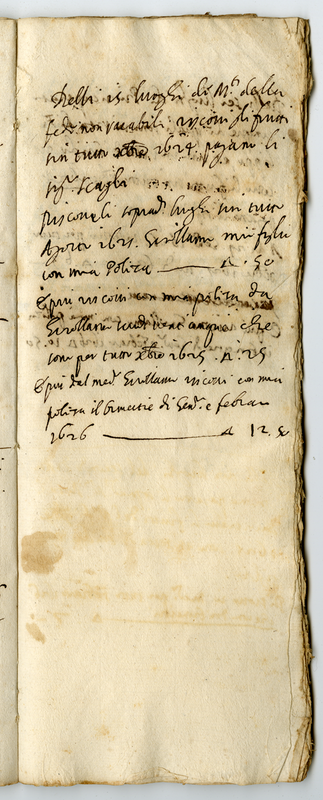 Delli 15 luoghi di M.ti della
fed.e non vacabili, riscossi li frutti
sin tutto xbre 1624 pagami li
sig.ri Scagli
riscossi li sop.ad.i luoghi sin tutto
1625. Girollamo mio figlio
con mia Poliza — 50
E piu riscosi con mia poliza da
Girollamo
per tutto xbre 1625 25
E piu dal med.o Girollamo riscosi con mia
poliza il bimestre di Gen.o e febraro
1626 — 12. 50